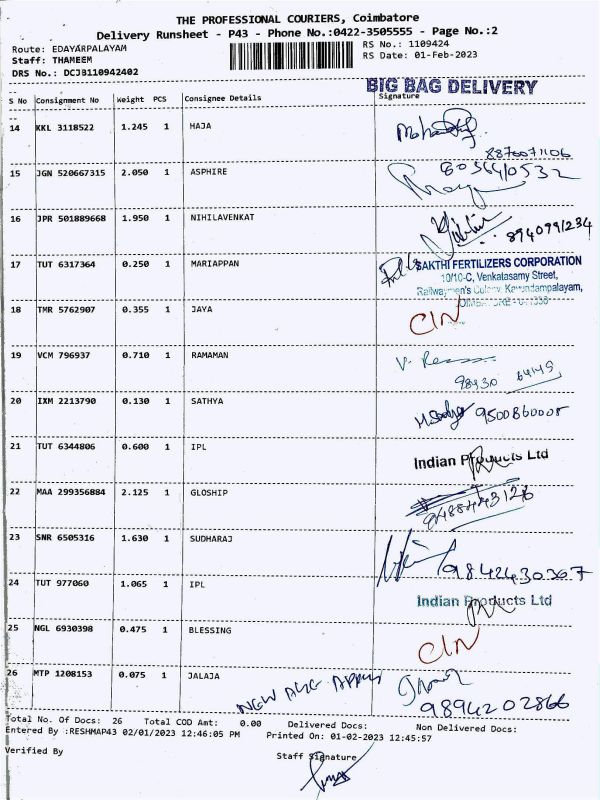 THE PROFESSIONAL COURIERS, Coimbatore
Delivery Runsheet - P43 - Phone No.:0422-3505555 - Page No.:2
Route: EDAYARPALAYAM
RS No.: 1109424
Staff: THAMEEM
RS Date: 01-Feb-2023
DRS No.: DCJB110942402
BIG BAG DELIVERY
S No Consignment No Weight PCS Consignee Details Signature
14 KKL 3118522 1.245 1 HAJA
8876071106
15 JGN 520667315 2.050 1 ASPHIRE
16 JPR 501889668 1.950 1 NIHILAVENKAT
8940991234
17 TUT 6317364 0.250 1 MARIAPPAN
SAKTHI FERTILIZERS CORPORATION
10/10-C, Venkatasamy Street,
Railwaymen's Colony, Kavundampalayam,
18 TMR 5762907 0.355 1 JAYA
19 VCM 796937 0.710 1 RAMAMAN
98430 64149
20 IXM 2213790 0.130 1 SATHYA
9500860008
21 TUT 6344806 0.600 1 IPL
Indian Products Ltd
22 MAA 299356884 2.125 1 GLOSHIP
23 SNR 6505316 1.630 1 SUDHARAJ
9842430307
24 TUT 977060 1.065 1 IPL
Indian Products Ltd
25 NGL 6930398 0.475 1 BLESSING
26 MTP 1208153 0.075 1 JALAJA
9894202866
Total No. Of Docs: 26 Total COD Amt: 0.00 Delivered Docs: Non Delivered Docs:
Entered By :RESHMAP43 02/01/2023 12:46:05 PM Printed On: 01-02-2023 12:45:57
Verified By
Staff Signature